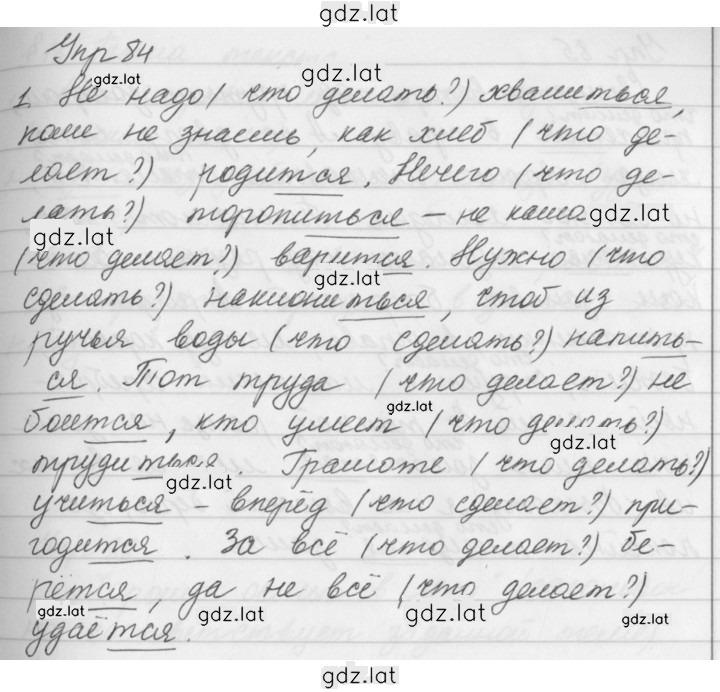 gdz.lat
Упр 84
gdz.lat
1. Не надо (что делать?) хвалиться,
коли не знаешь, как хлеб (что де-
лает?) родится. Нечего (что де-
лать?) торопиться – не каша gdz.lat
gdz.lat
(что делает?) варится. Нужно (что
gdz.lat
сделать?) наклониться, чтоб из
ручья воды (что сделать?) напить-
ся. Тот труда (что делает?) не
gdz.lat
боится, кто умеет (что делать?)
gdz.lat
трудиться. Грамоте (что делать?)
gdz.lat
учиться – вперёд (что сделает?) при-
годится. За всё (что делает?) бе-
рётся, да не всё (что делает?)
gdz.lat gdz.lat gdz.lat gdz.lat
удаётся.
gdz.lat